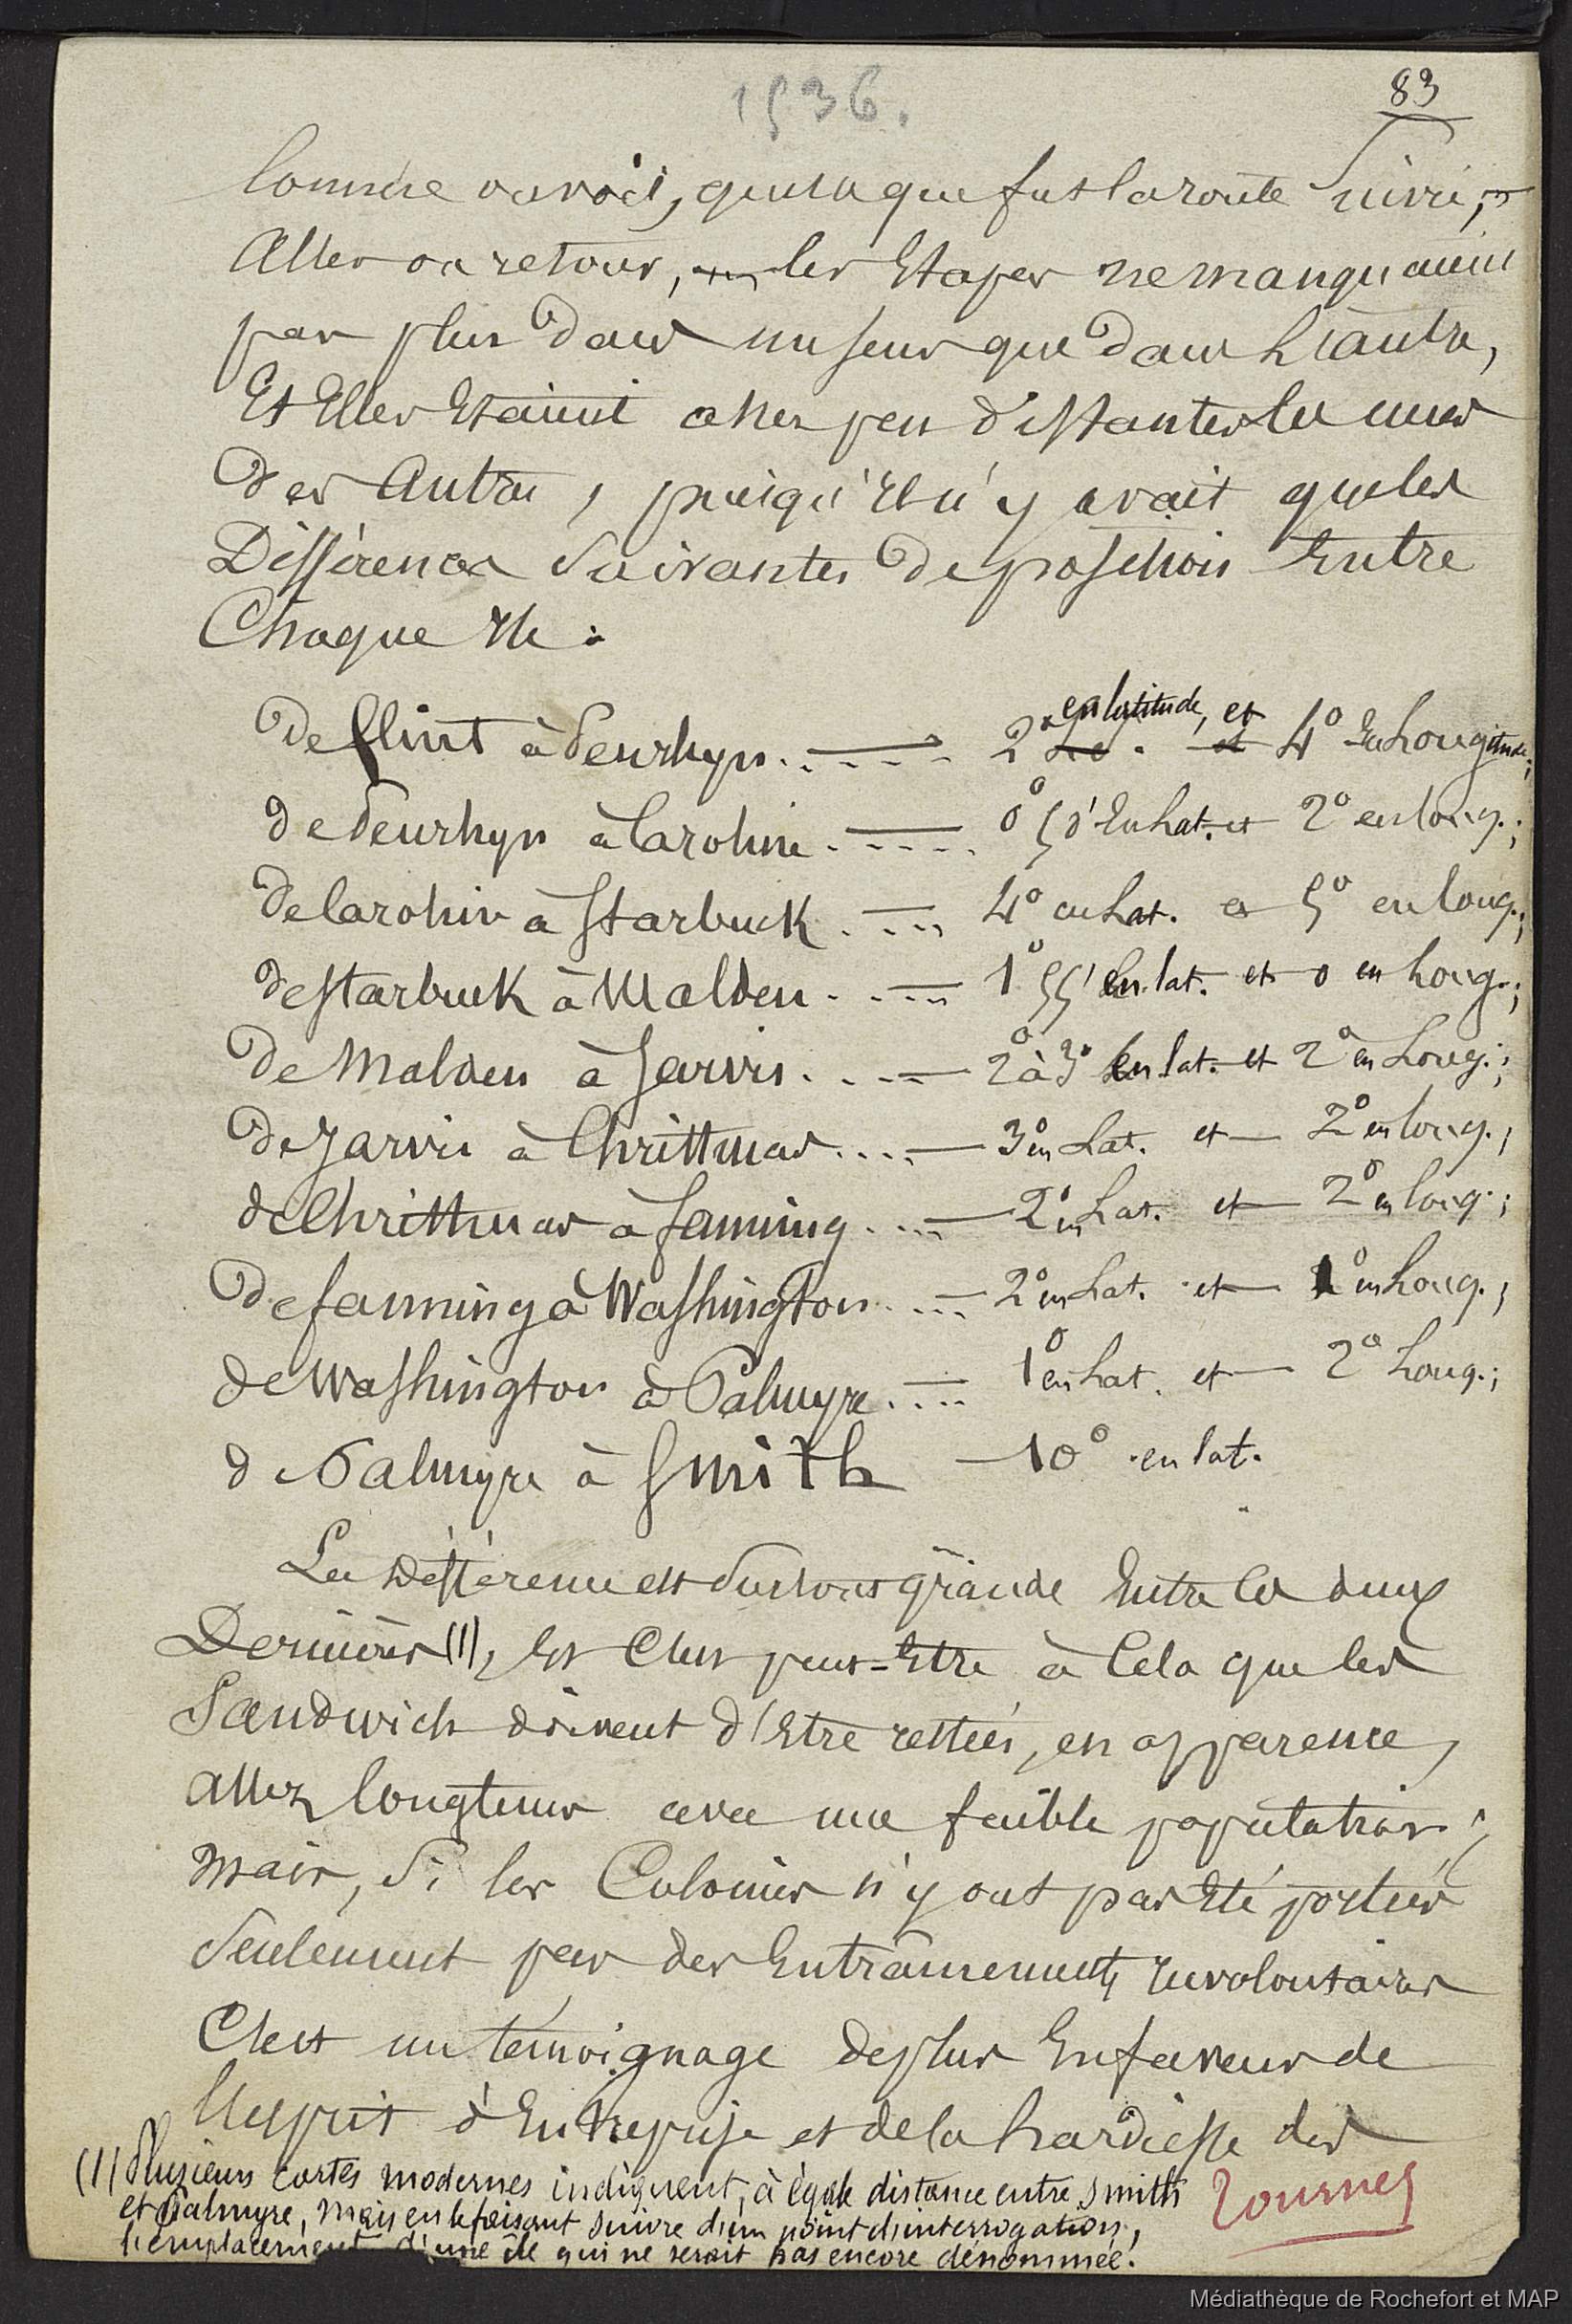 1536.
83
Comme on voit, quelle que fut la route suivie,
Aller ou retour, les Etapes ne manquaient
pas plus dans un sens que dans l'autre,
Et Elles Etaient assez peu distantes les unes
des Autres, puisqu'Il n'y avait que les
Différences Suivantes de position Entre
Chaque Ile :
De Flint à Penrhyn 2° en latitude, et 4° En Longitude;
de Penrhyn à Caroline 0° 5' En Lat. et 2° en long.;
de Caroline à Starbuck 4° en Lat. et 5° en long.;
de Starbuck à Malden 1° 55' En lat. et 0 en Long.;
De Malden à Jarvis 2° à 3° En lat. et 2° en Long.;
de Jarvis à Christmas 3° en Lat. et 2° en long.;
de Christmas à Fanning 2° en Lat. et 2° en long.;
De Fanning à Washington 2° en Lat. et 1° en Long.;
de Washington à Palmyre 1° en Lat. et 2° Long.;
de Palmyre à Smith 10° en lat.
La Différence est surtout grande Entre les deux
Dernières (1), Et C'est peut-Etre à Cela que les
Sandwich doivent d'Etre restées, en apparence,
assez longtems avec une faible population;
Mais, Si les Colonies n'y ont pas Eté portées
Seulement par des Entraînements Involontaires
C'est un témoignage de plus En faveur de
l'Esprit d'Entreprise et de la hardiesse des
(1) Plusieurs cartes modernes indiquent, à égale distance entre Smith
et Palmyre, mais en le faisant suivre d'un point d'interrogation,
l'emplacement d'une île qui ne serait pas encore dénommée.
Tournez
Médiathèque de Rochefort et MAP